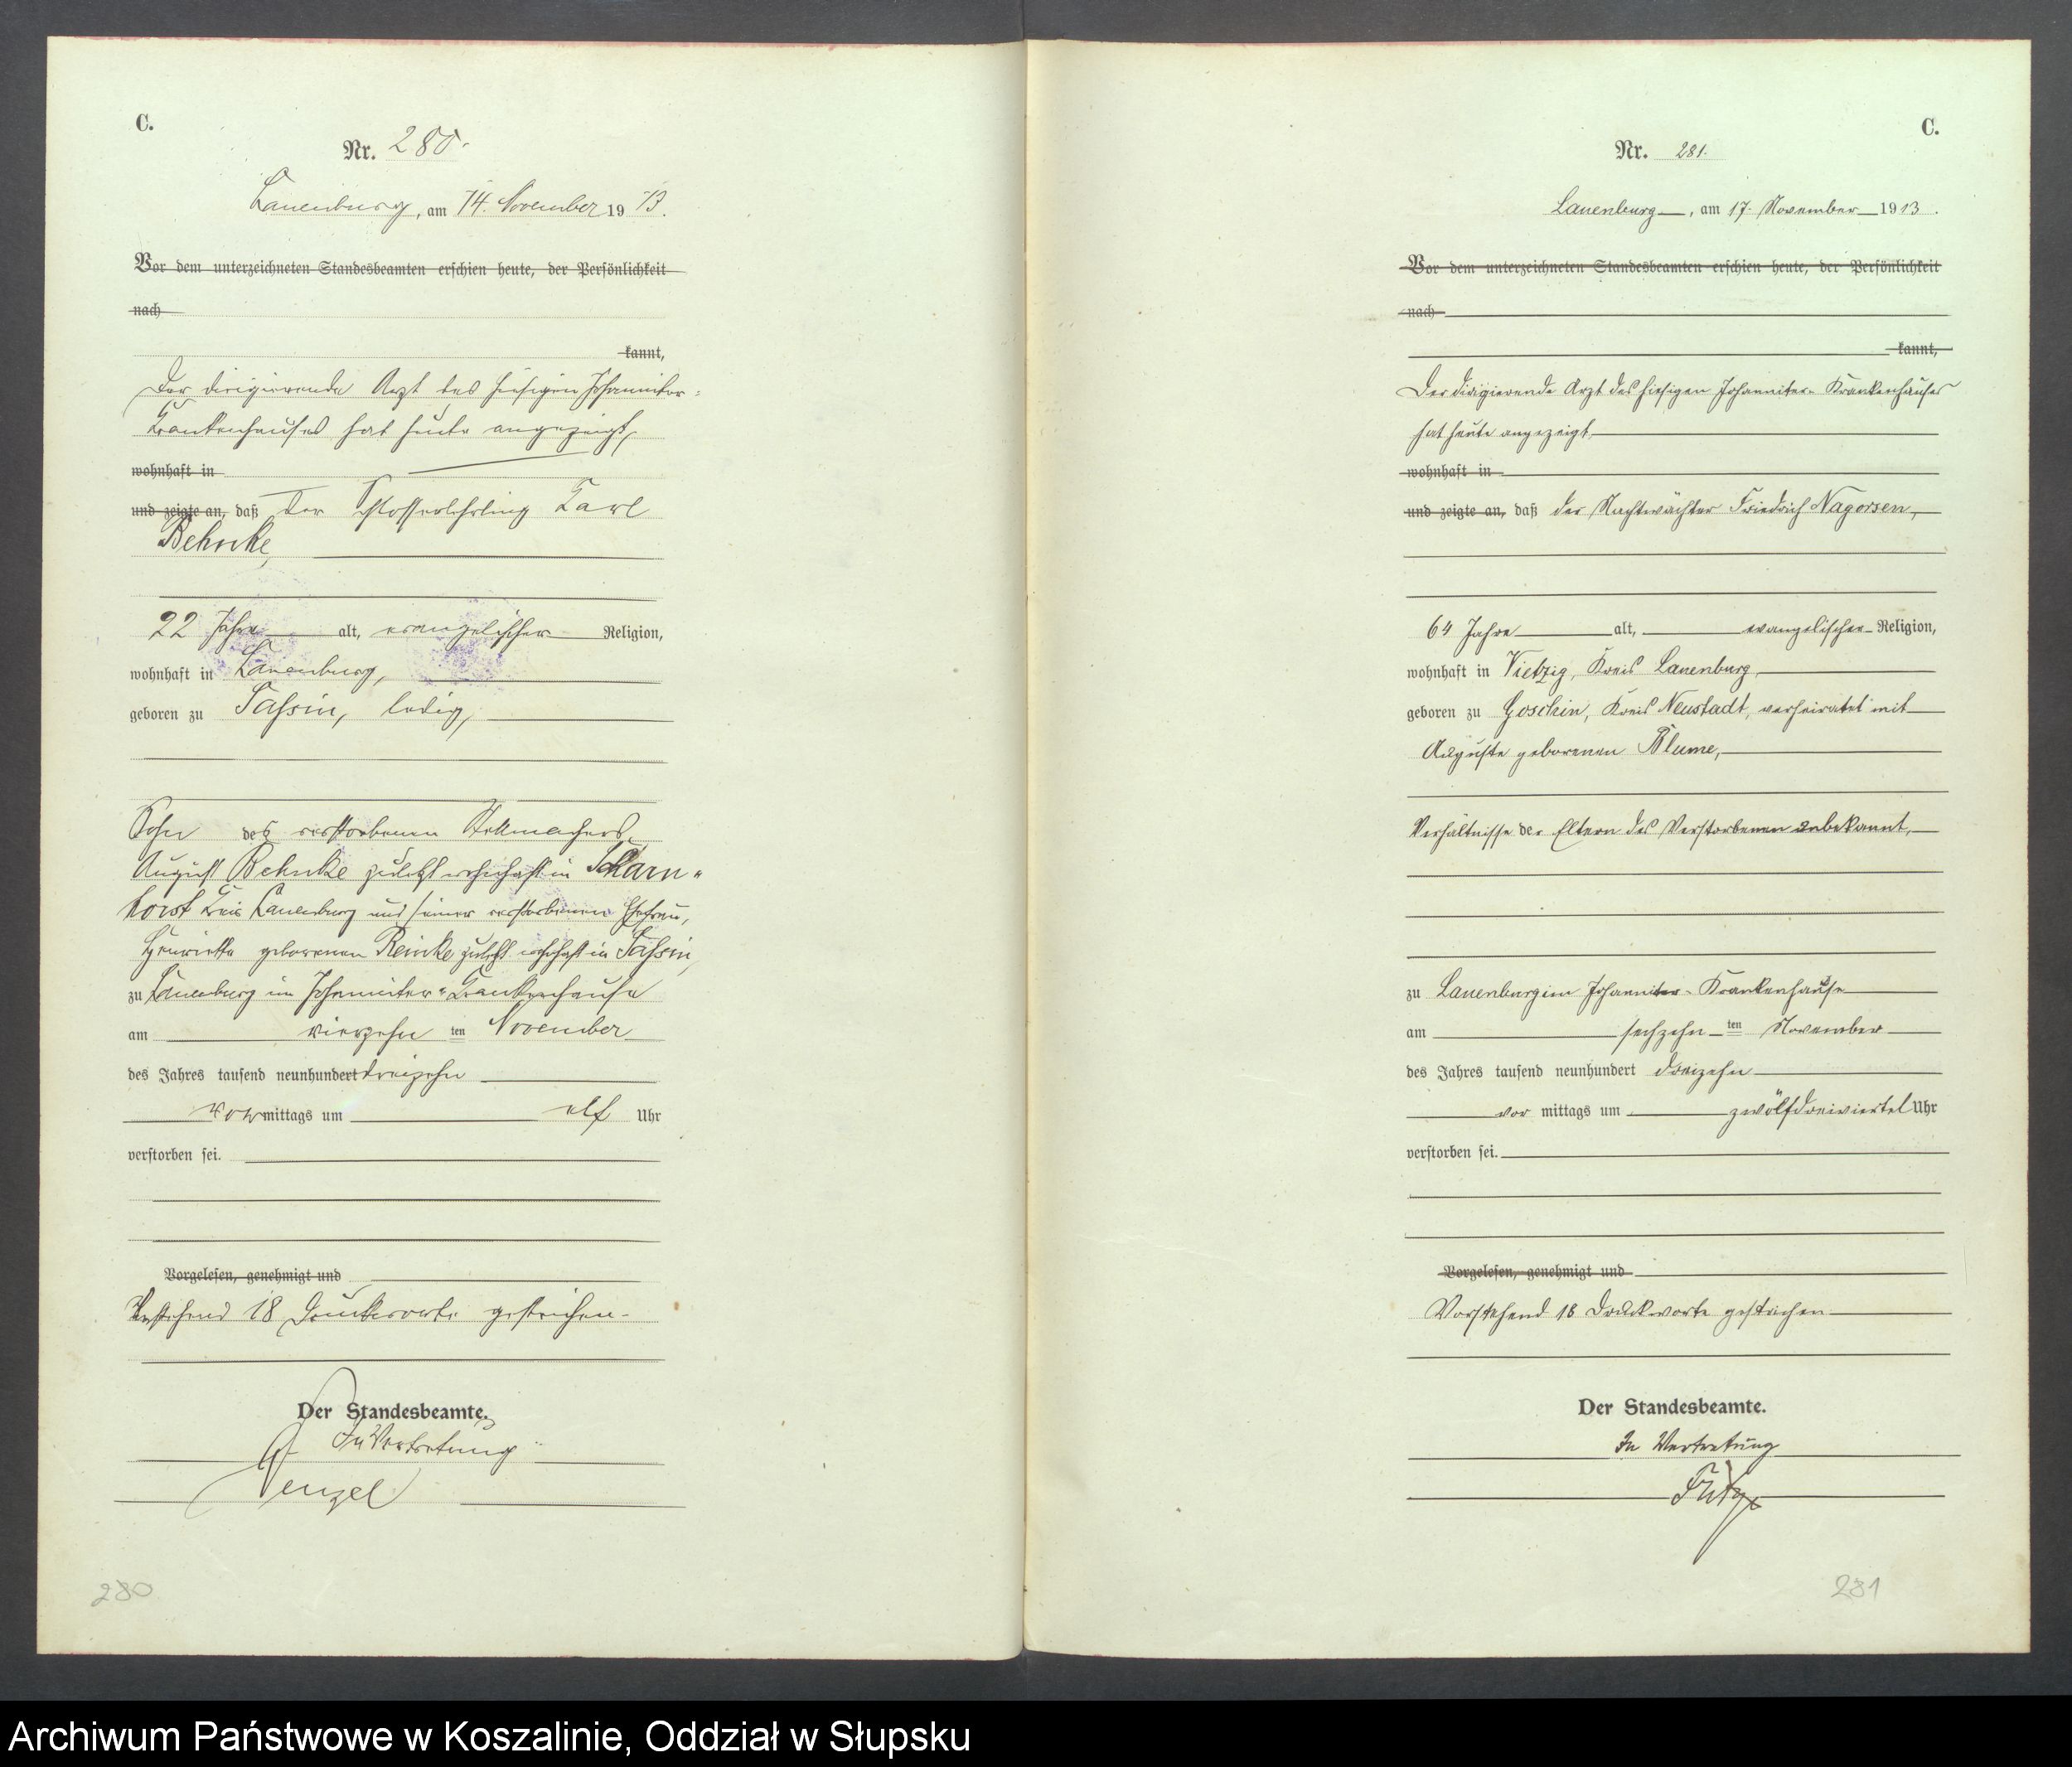 C.
Nr. 280.
Lauenburg, am 14. November 1913.
Vor dem unterzeichneten Standesbeamten erschien heute, der Persönlichkeit
nach
kannt,
Der dirigierende Arzt des hiesigen Johanniter-
Krankenhauses hat heute angezeigt,
wohnhaft in
und zeigte an, daß der Schlosserlehrling Karl
Behnke,
22 Jahre alt, evangelischer Religion,
wohnhaft in Lauenburg,
geboren zu Sassin, ledig,
Sohn des verstorbenen Stellmachers
August Behnke zuletzt wohnhaft in Scharn-
horst Kreis Lauenburg und seiner verstorbenen Ehefrau,
Henriette geborenen Reinke zuletzt wohnhaft in Sassin,
zu Lauenburg im Johanniter-Krankenhause
am vierzehn ten November
des Jahres tausend neunhundert dreizehn
vor mittags um elf Uhr
verstorben sei.
Vorgelesen, genehmigt und
Vorstehend 18 Druckworte gestrichen.
Der Standesbeamte.
In Vertretung
Wenzel
280
C.
Nr. 281.
Lauenburg, am 17. November 1913.
Vor dem unterzeichneten Standesbeamten erschien heute, der Persönlichkeit
nach
kannt,
Der dirigierende Arzt des hiesigen Johanniter-Krankenhauses
hat heute angezeigt,
wohnhaft in
und zeigte an, daß der Nachtwächter Friedrich Nagorsen,
64 Jahre alt, evangelischer Religion,
wohnhaft in Vietzig, Kreis Lauenburg,
geboren zu Goschin, Kreis Neustadt, verheiratet mit
Auguste geborenen Blume,
Verhältnisse der Eltern des Verstorbenen unbekannt,
zu Lauenburg im Johanniter-Krankenhause
am sechzehn ten November
des Jahres tausend neunhundert dreizehn
vor mittags um zwölfdreiviertel Uhr
verstorben sei.
Vorgelesen, genehmigt und
Vorstehend 18 Druckworte gestrichen
Der Standesbeamte.
In Vertretung
281
Archiwum Państwowe w Koszalinie, Oddział w Słupsku